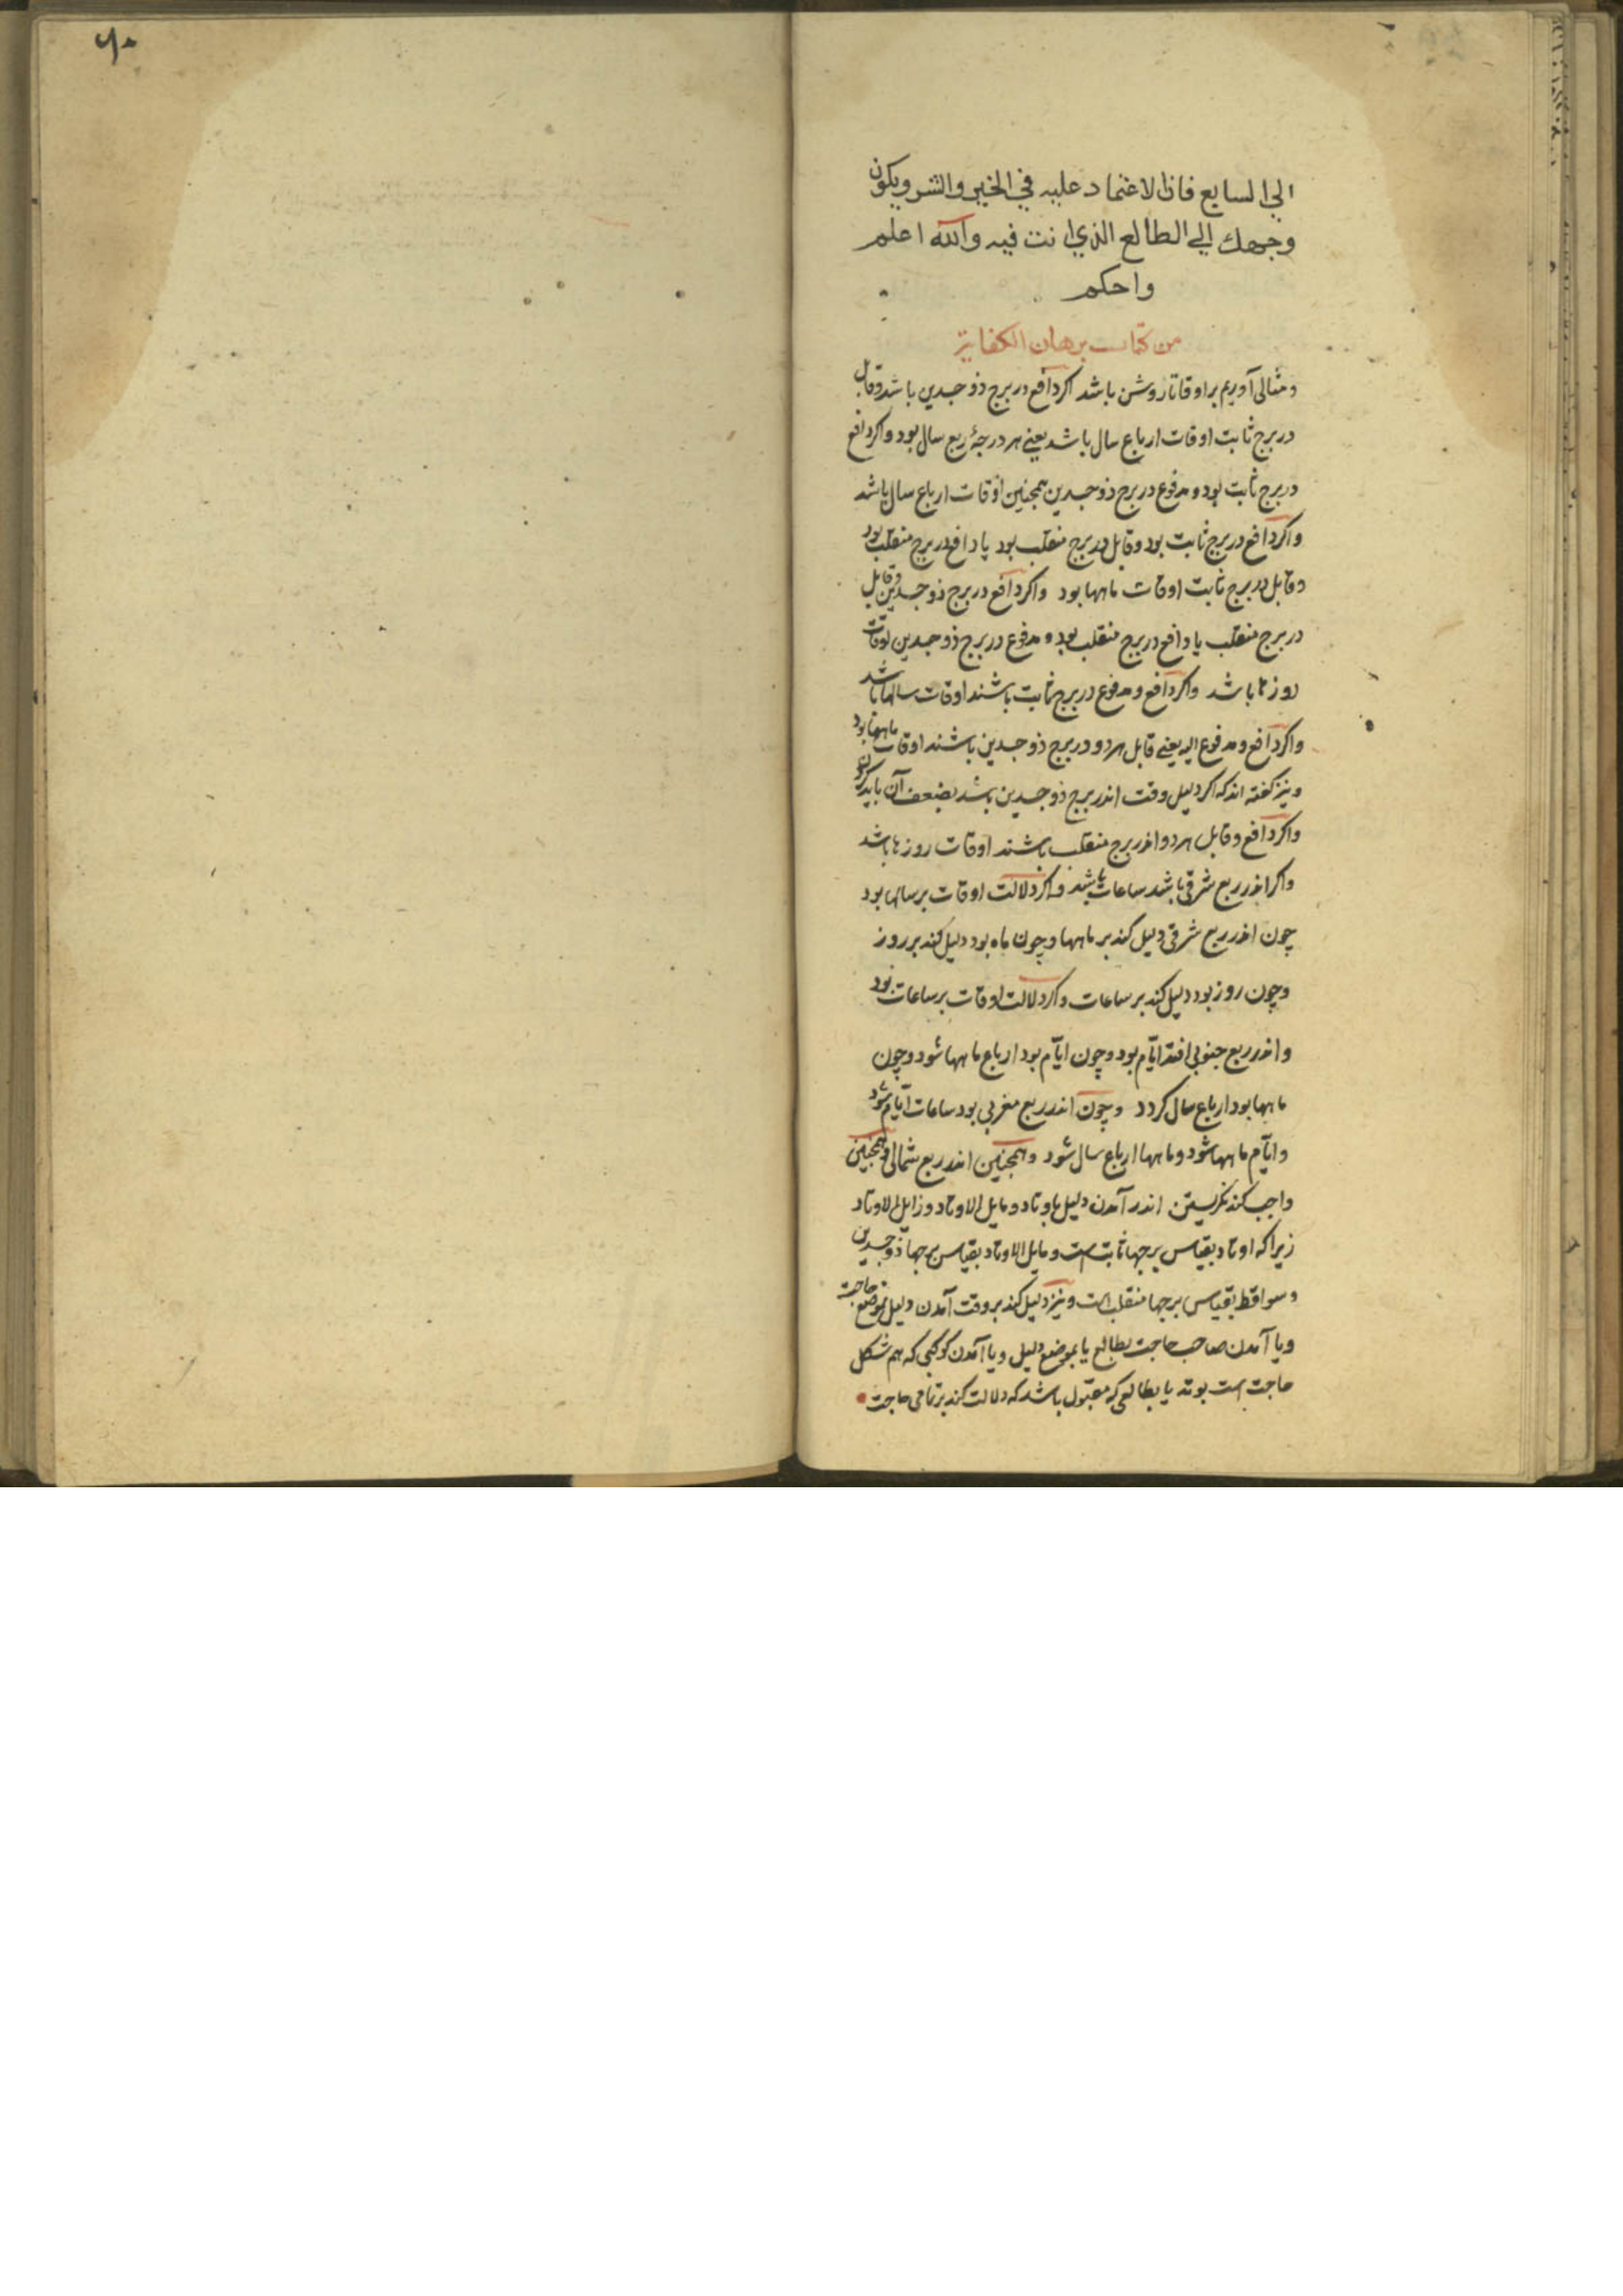 الي السابع فان الاعتماد عليه في الخير والشر ويكون
وجهك الي الطالع الذي انت فيه والله اعلم
واحكم
من كتاب برهان الكفاية
و مثالی آوریم بر اوقات تا روشن باشد اکر دافع در برج ذو جسدین باشد و قابل
در برج ثابت اوقات ارباع سال باشد یعنی هر درجۀ ربع سال بود و اکر دافع
در برج ثابت بود و مدفوع در برج ذو جسدین همچنین اوقات ارباع سال باشد
و اکر دافع در برج ثابت بود و قابل در برج منقلب بود یا دافع در برج منقلب بود
و قابل در برج ثابت اوقات ماهها بود و اکر دافع در برج ذو جسدین و قابل
در برج منقلب یا دافع در برج منقلب بود و مدفوع در برج ذو جسدین اوقات
روزها باشد و اکر دافع و مدفوع در برج ثابت باشند اوقات سالها باشد
و اکر دافع و مدفوع الیه یعنی قابل هر دو در برج ذو جسدین باشند اوقات ماهها بود
و نیز کفته اند که اکر دلیل وقت اندر برج ذو جسدین باشد بضعف آن باید کرد
و اکر دافع و قابل هر دو اندر برج منقلب باشند اوقات روزها باشد
و اکر اندر ربع شرقی باشد ساعات باشد و اکر دلالت اوقات بر سالها بود
چون اندر ربع شرقی دلیل کند بر ماهها و چون ماه بود دلیل کند بر روز
و چون روز بود دلیل کند بر ساعات و اکر دلالت اوقات بر ساعات بود
و اندر ربع جنوبی افتد ایّام بود و چون ایّام بود ارباع ماهها شود و چون
ماهها بود ارباع سال کردد و چون اندر ربع مغربی بود ساعات ایّام شود
و ایّام ماهها شود و ماهها ارباع سال شود و همچنین اندر ربع شمالی و همچنین
واجب کند نکریستن اندر آمدن دلیل باوتاد و مایل الاوتاد و زایل الاوتاد
زیرا که اوتاد بقیاس برجها ثابت است و مایل الاوتاد بقیاس برجها ذو جسدین
و سواقط بقیاس برجها منقلب است و نیز دلیل کند بر وقت آمدن دلیل بموضع حاجت
و یا آمدن صاحب حاجت بطالع یا بموضع دلیل و یا آمدن کوکبی که هم شکل
حاجت است بوتد یا بطالعی که مقبول باشد که دلالت کند بر تمامی حاجت